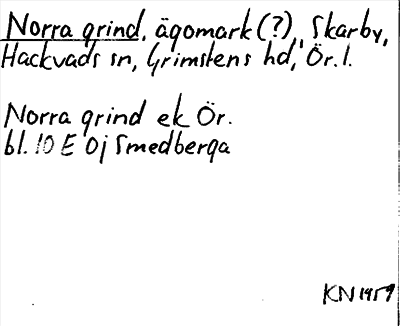 Norra grind, ägomark (?), Skarby,
Hackvads sn, Grimstens hd, Ör. l.
Norra grind ek Ör.
bl. 10 E 0j Smedberga
KN 1959